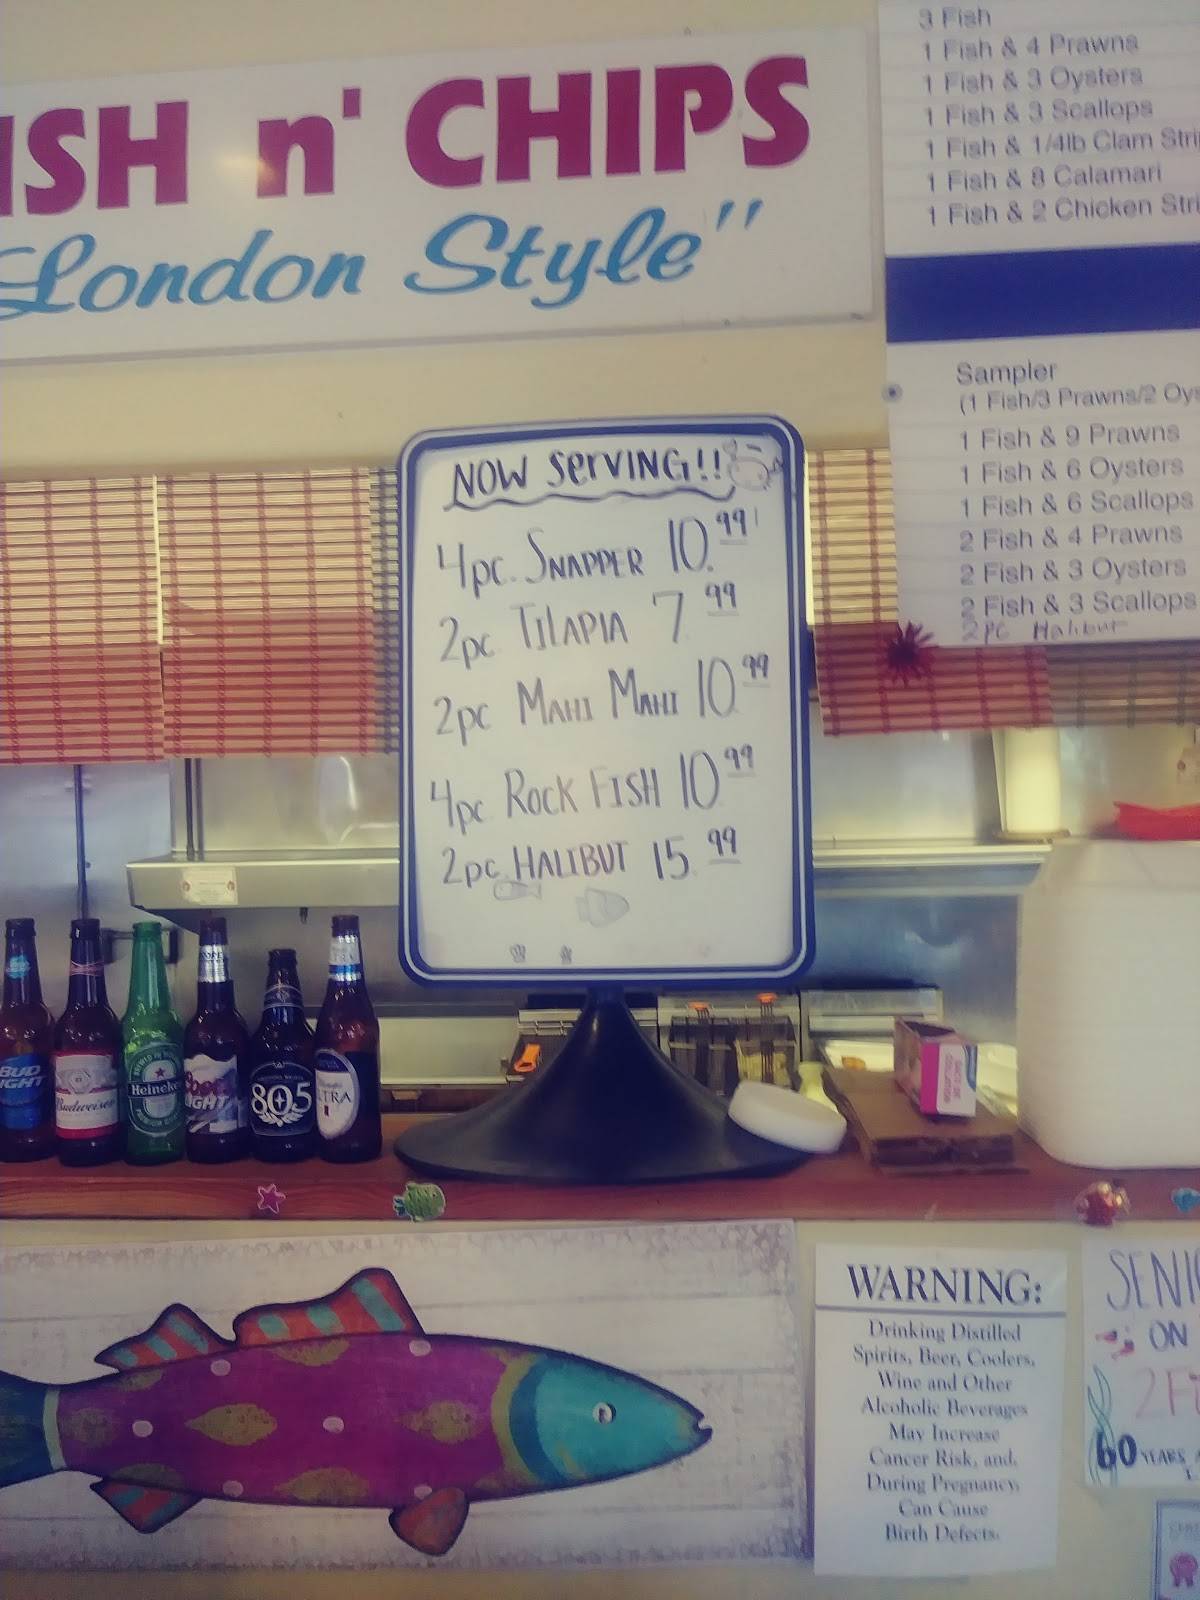 ISH n' CHIPS
London Style"
3 Fish
1 Fish & 4 Prawns
1 Fish & 3 Oysters
1 Fish & 3 Scallops
1 Fish & 1/4lb Clam Stri
1 Fish & 8 Calamari
1 Fish & 2 Chicken Stri
Sampler
(1 Fish/3 Prawns/2 Oys
1 Fish & 9 Prawns
1 Fish & 6 Oysters
1 Fish & 6 Scallops
2 Fish & 4 Prawns
2 Fish & 3 Oysters
2 Fish & 3 Scallops
2 PC Halibut
NOW SERVING!!
4pc. SNAPPER 10.99
2pc TILAPIA 7.99
2pc MAHI MAHI 10.99
4pc. ROCK FISH 10.99
2pc. HALIBUT 15.99
BUD
IGHT
Budweiser
Heineke
Coors
LIGHT
805
TRA
WARNING:
Drinking Distilled
Spirits, Beer, Coolers,
Wine and Other
Alcoholic Beverages
May Increase
Cancer Risk, and,
During Pregnancy,
Can Cause
Birth Defects.
SENI
ON
60 YEARS